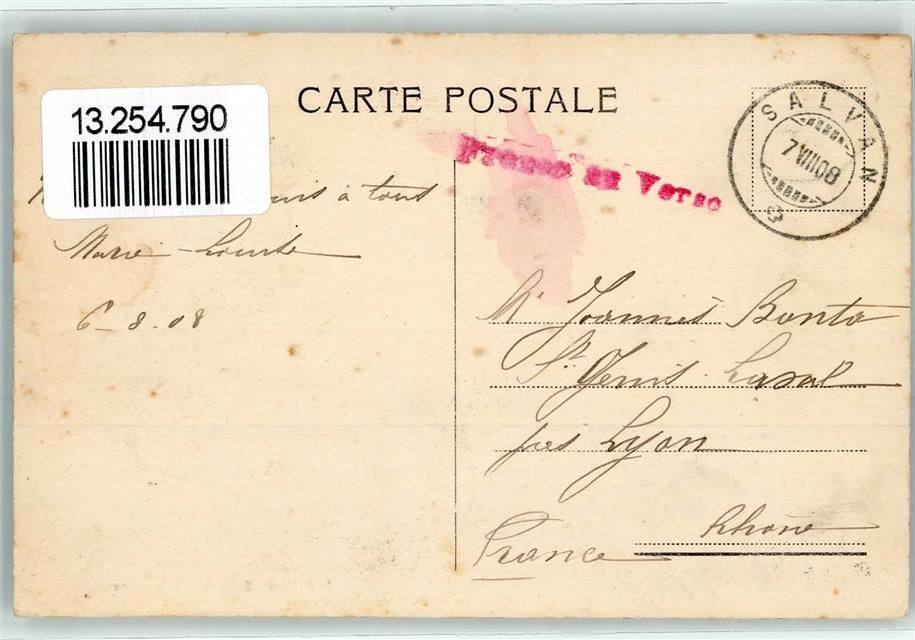 CARTE POSTALE
13.254.790
SALVAN
7 VIII 08
Franco au Verso
à tous
Marie-Louise
6-8-08
Mr Joannès
St. Genis-Laval
près Lyon
Rhône
France